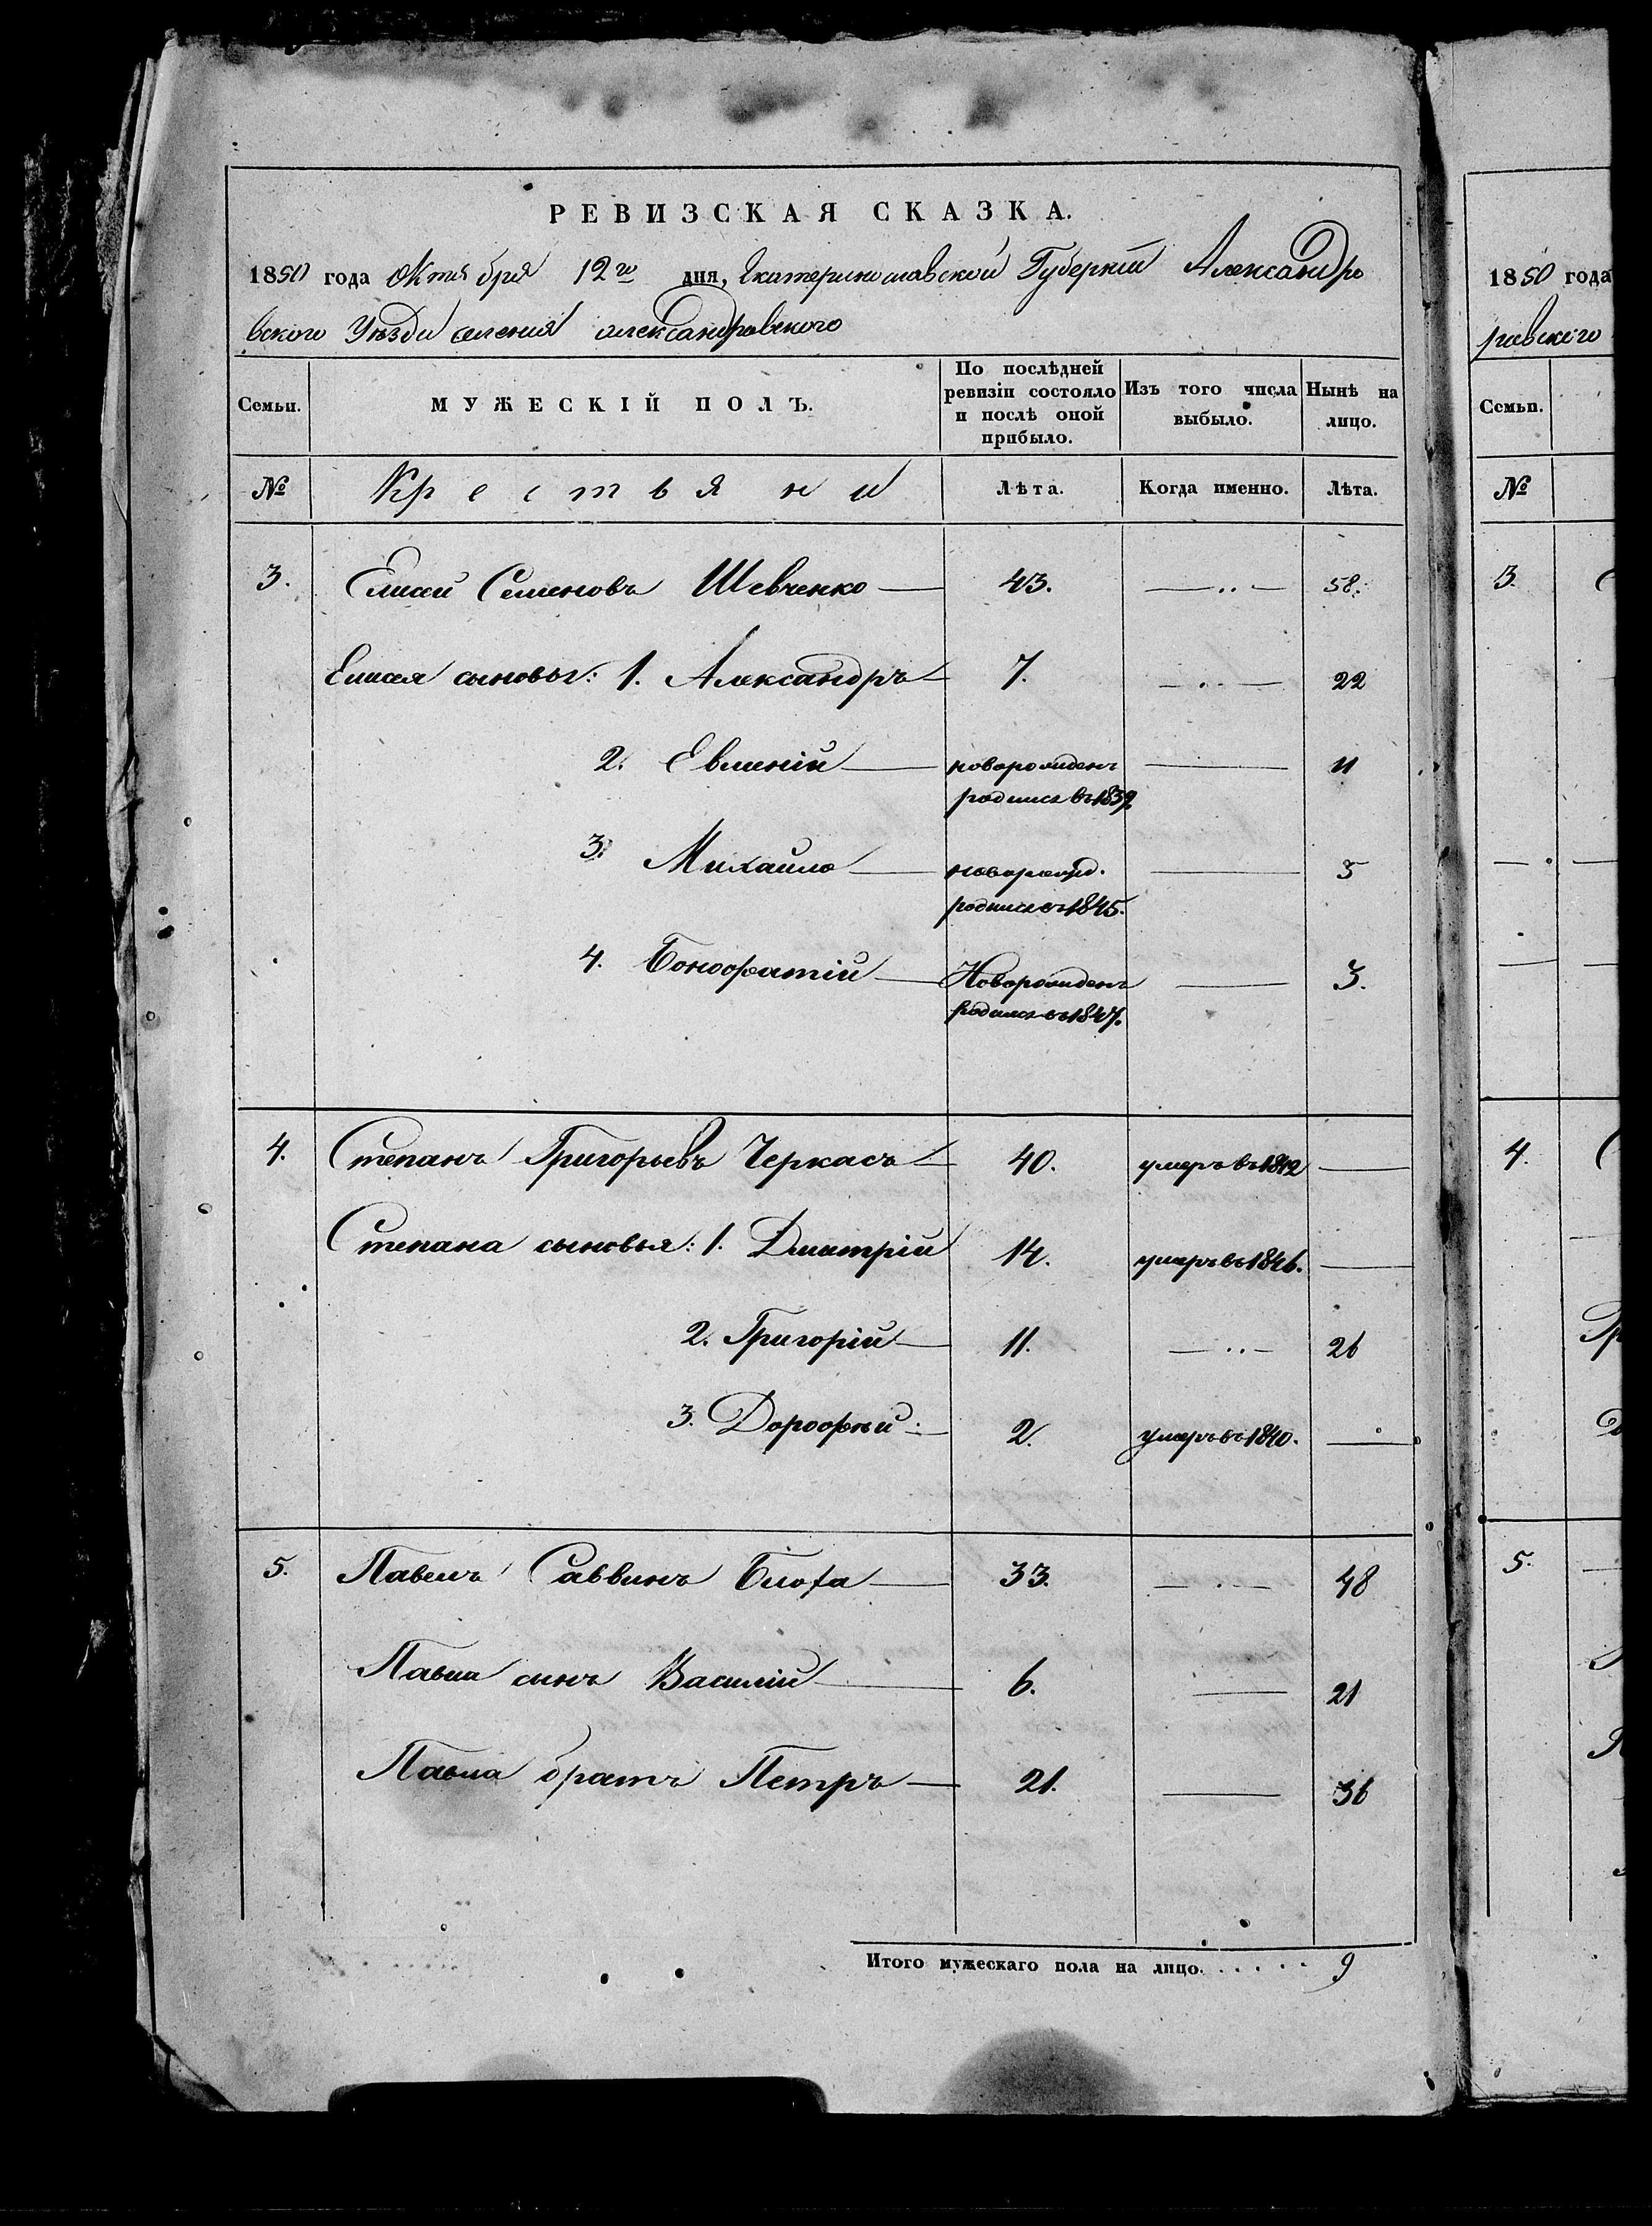 РЕВИЗСКАЯ СКАЗКА.
1850 года Октября 12го дня, Екатеринославской Губернии Александро
вского Уѣзда селения Александровского
Семьи. МУЖЕСКІЙ ПОЛЪ. По послѣдней ревизіи состояло и послѣ оной прибыло. Изъ того числа выбыло. Нынѣ на лицо.
№ Крестьяни Лѣта. Когда именно. Лѣта.
3. Елисей Семеновъ Шевченко 43. 58.
Елисея сыновья: 1. Александръ 7. 22
2. Евмений новорожденъ 11
родился въ 1839
3. Михайло новорожд. 5
родился въ 1845.
4. Бонофатій Новорожденъ 3.
родился въ 1847.
4. Степанъ Григорьевъ Черкасъ 40. умеръ въ 1842
Степана сыновья: 1. Дмитрій 14. умеръ въ 1846.
2. Григорій 11. 26
3. Дорофѣй 2. умеръ въ 1840.
5. Павелъ Саввинъ Блоха 33. 48
Павла сынъ Василій 6. 21
Павла братъ Петръ 21. 36
Итого мужескаго пола на лицо. 9
1850 года
ровского
Семьи.
№
3.
4.
5.